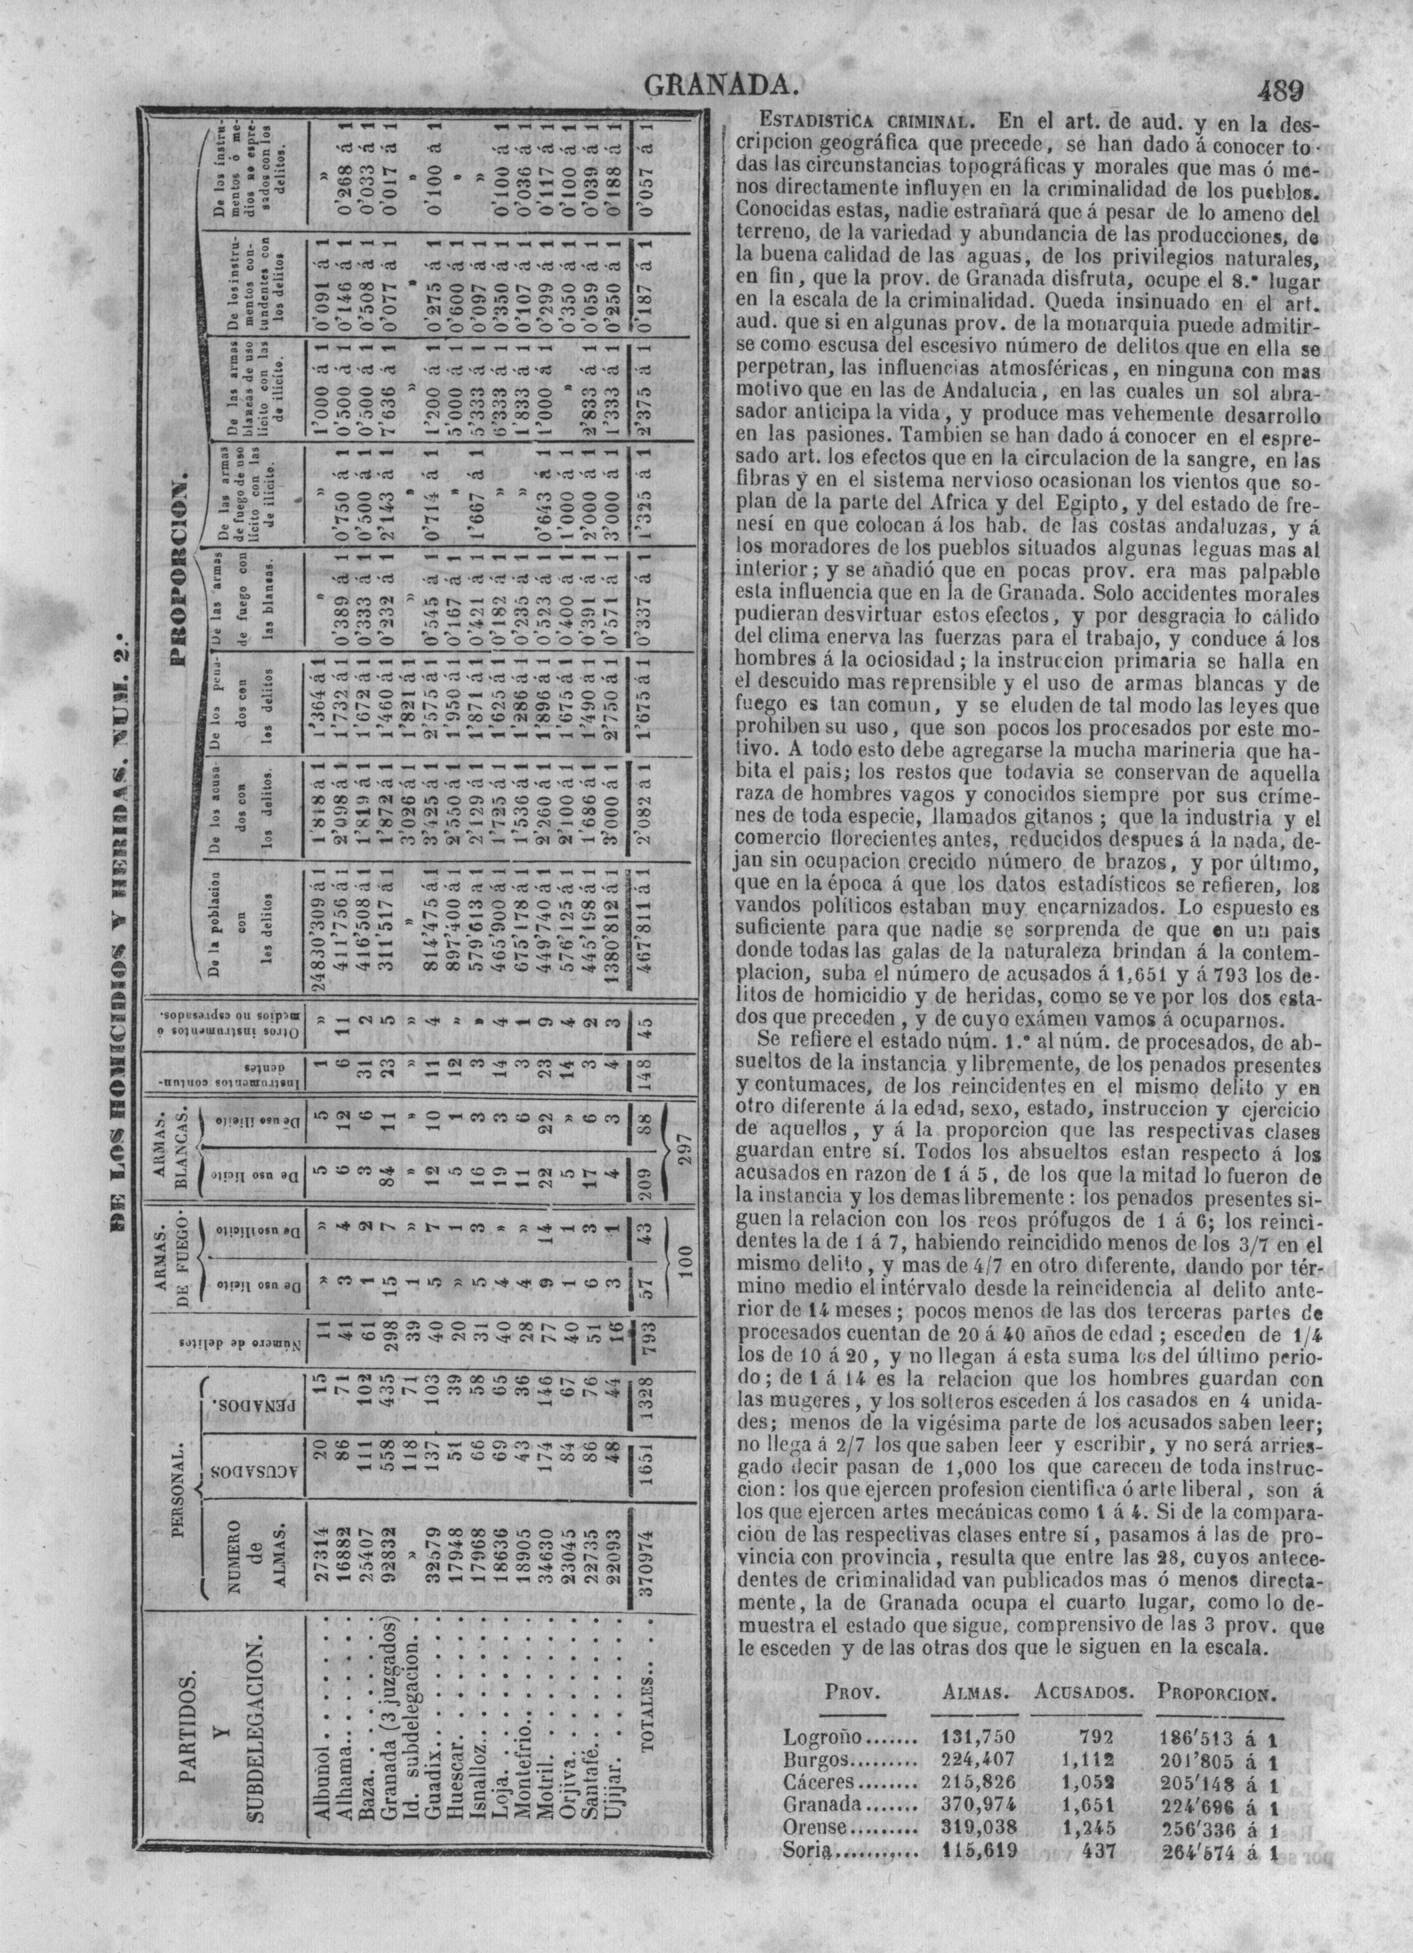 GRANADA.
489
DE LOS HOMICIDIOS Y HERIDAS. NUM. 2.º
PARTIDOS.
Y
SUBDELEGACION.
PERSONAL.
NUMERO
de
ALMAS.
ACUSADOS
PENADOS.
Número de delitos
ARMAS.
DE FUEGO.
De uso lícito
De uso ilícito
ARMAS.
BLANCAS.
De uso lícito
De uso ilícito
Instrumentos contun-
dentes
Otros instrumentos ó
medios no espresados.
PROPORCION.
De la poblacion
con
los delitos
De los acusa-
dos con
los delitos.
De los pena-
dos con
los delitos
De las armas
de fuego con
las blancas.
De las armas
de fuego de uso
lícito con las
de ilícito.
De las armas
blancas de uso
lícito con las
de ilícito.
De los instru-
mentos con-
tundentes con
los delitos
De los instru-
mentos ó me-
dios no espre-
sados con los
delitos.
Albuñol . . . . . . 27314 20 15 11 » » 5 5 1 » 24830'309 á 1 1'818 á 1 1'364 á 1 » » 1'000 á 1 0'091 á 1 »
Alhama. . . . . . . 16882 86 71 41 3 4 6 12 6 11 411'756 á 1 2'098 á 1 1'732 á 1 0'389 á 1 0'750 á 1 0'500 á 1 0'146 á 1 0'268 á 1
Baza. . . . . . . . 25407 111 102 61 1 2 3 6 31 2 416'508 á 1 1'819 á 1 1'672 á 1 0'333 á 1 0'500 á 1 0'500 á 1 0'508 á 1 0'033 á 1
Granada (3 juzgados) 92832 558 435 298 15 7 84 11 23 5 311'517 á 1 1'872 á 1 1'460 á 1 0'232 á 1 2'143 á 1 7'636 á 1 0'077 á 1 0'017 á 1
Id. subdelegacion. . » 118 71 39 1 » » » » » » 3'026 á 1 1'821 á 1 » » » » »
Guadix. . . . . . . 32579 137 103 40 5 7 12 10 11 4 814'475 á 1 3'425 á 1 2'575 á 1 0'545 á 1 0'714 á 1 1'200 á 1 0'275 á 1 0'100 á 1
Huescar. . . . . . 17948 51 39 20 » 1 5 1 12 » 897'400 á 1 2'550 á 1 1'950 á 1 0'167 á 1 » 5'000 á 1 0'600 á 1 »
Isnalloz. . . . . . 17968 66 58 31 5 3 16 3 3 » 579'613 á 1 2'129 á 1 1'871 á 1 0'421 á 1 1'667 á 1 5'333 á 1 0'097 á 1 »
Loja. . . . . . . . 18636 69 65 40 4 » 19 3 14 4 465'900 á 1 1'725 á 1 1'625 á 1 0'182 á 1 » 6'333 á 1 0'350 á 1 0'100 á 1
Montefrio. . . . . 18905 43 36 28 4 » 11 6 3 1 675'178 á 1 1'536 á 1 1'286 á 1 0'235 á 1 » 1'833 á 1 0'107 á 1 0'036 á 1
Motril. . . . . . . 34630 174 146 77 9 14 22 22 23 9 449'740 á 1 2'260 á 1 1'896 á 1 0'523 á 1 0'643 á 1 1'000 á 1 0'299 á 1 0'117 á 1
Orjiva. . . . . . . 23045 84 67 40 1 1 5 » 14 4 576'125 á 1 2'100 á 1 1'675 á 1 0'400 á 1 1'000 á 1 » 0'350 á 1 0'100 á 1
Santafé. . . . . . 22735 86 76 51 6 3 17 6 3 2 445'198 á 1 1'686 á 1 1'490 á 1 0'391 á 1 2'000 á 1 2'833 á 1 0'059 á 1 0'039 á 1
Ujijar. . . . . . . 22093 48 44 16 3 1 4 3 4 3 1380'812 á 1 3'000 á 1 2'750 á 1 0'571 á 1 3'000 á 1 1'333 á 1 0'250 á 1 0'188 á 1
TOTALES. . . . 370974 1651 1328 793 57 43 209 88 148 45 467'811 á 1 2'082 á 1 1'675 á 1 0'337 á 1 1'325 á 1 2'375 á 1 0'187 á 1 0'057 á 1
100 297
ESTADISTICA CRIMINAL. En el art. de aud. y en la des-
cripcion geográfica que precede, se han dado á conocer to-
das las circunstancias topográficas y morales que mas ó me-
nos directamente influyen en la criminalidad de los pueblos.
Conocidas estas, nadie estrañará que á pesar de lo ameno del
terreno, de la variedad y abundancia de las producciones, de
la buena calidad de las aguas, de los privilegios naturales,
en fin, que la prov. de Granada disfruta, ocupe el 8.º lugar
en la escala de la criminalidad. Queda insinuado en el art.
aud. que si en algunas prov. de la monarquia puede admitir-
se como escusa del escesivo número de delitos que en ella se
perpetran, las influencias atmosféricas, en ninguna con mas
motivo que en las de Andalucia, en las cuales un sol abra-
sador anticipa la vida, y produce mas vehemente desarrollo
en las pasiones. Tambien se han dado á conocer en el espre-
sado art. los efectos que en la circulacion de la sangre, en las
fibras y en el sistema nervioso ocasionan los vientos que so-
plan de la parte del Africa y del Egipto, y del estado de fre-
nesí en que colocan á los hab. de las costas andaluzas, y á
los moradores de los pueblos situados algunas leguas mas al
interior; y se añadió que en pocas prov. era mas palpable
esta influencia que en la de Granada. Solo accidentes morales
pudieran desvirtuar estos efectos, y por desgracia lo cálido
del clima enerva las fuerzas para el trabajo, y conduce á los
hombres á la ociosidad; la instruccion primaria se halla en
el descuido mas reprensible y el uso de armas blancas y de
fuego es tan comun, y se eluden de tal modo las leyes que
prohiben su uso, que son pocos los procesados por este mo-
tivo. A todo esto debe agregarse la mucha marineria que ha-
bita el pais; los restos que todavia se conservan de aquella
raza de hombres vagos y conocidos siempre por sus críme-
nes de toda especie, llamados gitanos; que la industria y el
comercio florecientes antes, reducidos despues á la nada, de-
jan sin ocupacion crecido número de brazos, y por último,
que en la época á que los datos estadísticos se refieren, los
vandos políticos estaban muy encarnizados. Lo espuesto es
suficiente para que nadie se sorprenda de que en un pais
donde todas las galas de la naturaleza brindan á la contem-
placion, suba el número de acusados á 1,651 y á 793 los de-
litos de homicidio y de heridas, como se ve por los dos esta-
dos que preceden, y de cuyo exámen vamos á ocuparnos.
Se refiere el estado núm. 1.º al núm. de procesados, de ab-
sueltos de la instancia y libremente, de los penados presentes
y contumaces, de los reincidentes en el mismo delito y en
otro diferente á la edad, sexo, estado, instruccion y ejercicio
de aquellos, y á la proporcion que las respectivas clases
guardan entre sí. Todos los absueltos estan respecto á los
acusados en razon de 1 á 5, de los que la mitad lo fueron de
la instancia y los demas libremente: los penados presentes si-
guen la relacion con los reos prófugos de 1 á 6; los reinci-
dentes la de 1 á 7, habiendo reincidido menos de los 3/7 en el
mismo delito, y mas de 4/7 en otro diferente, dando por tér-
mino medio el intérvalo desde la reincidencia al delito ante-
rior de 14 meses; pocos menos de las dos terceras partes de
procesados cuentan de 20 á 40 años de edad; esceden de 1/4
los de 10 á 20, y no llegan á esta suma los del último perio-
do; de 1 á 14 es la relacion que los hombres guardan con
las mugeres, y los solteros esceden á los casados en 4 unida-
des; menos de la vigésima parte de los acusados saben leer;
no llega á 2/7 los que saben leer y escribir, y no será arries-
gado decir pasan de 1,000 los que carecen de toda instruc-
cion: los que ejercen profesion cientifica ó arte liberal, son á
los que ejercen artes mecánicas como 1 á 4. Si de la compara-
cion de las respectivas clases entre sí, pasamos á las de pro-
vincia con provincia, resulta que entre las 28, cuyos antece-
dentes de criminalidad van publicados mas ó menos directa-
mente, la de Granada ocupa el cuarto lugar, como lo de-
muestra el estado que sigue, comprensivo de las 3 prov. que
le esceden y de las otras dos que le siguen en la escala.
PROV. ALMAS. ACUSADOS. PROPORCION.
Logroño....... 131,750 792 186'513 á 1
Burgos......... 224,407 1,112 201'805 á 1
Cáceres........ 215,826 1,052 205'148 á 1
Granada....... 370,974 1,651 224'696 á 1
Orense......... 319,038 1,245 256'336 á 1
Soria........... 115,619 437 264'574 á 1